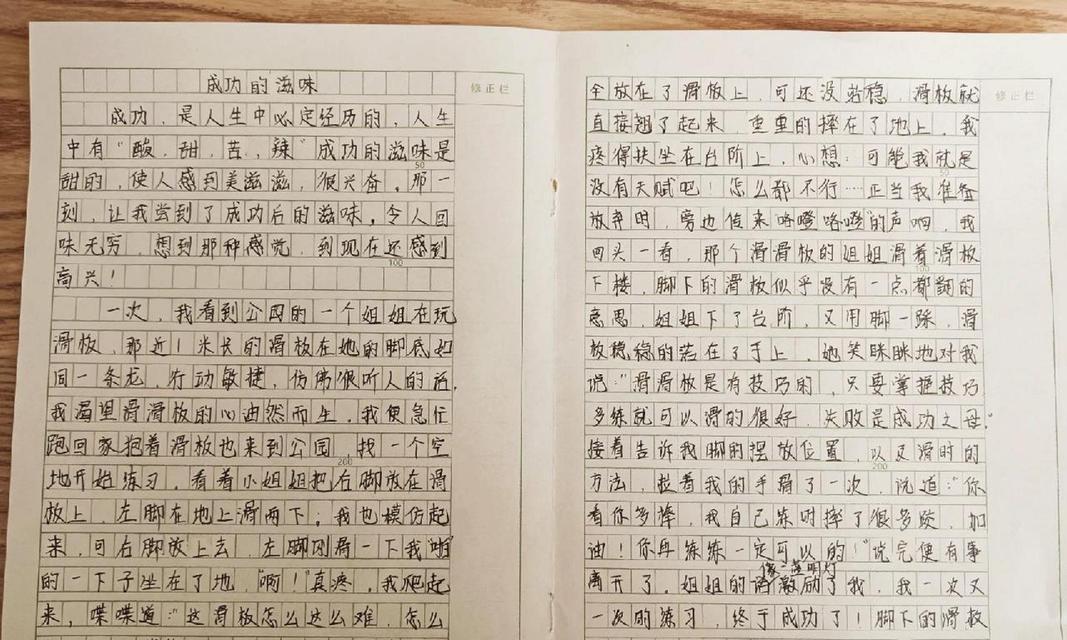 成功的滋味
修正栏
成功，是人生中必定经历的，人生
中有“酸，甜，苦，辣”成功的滋味是
50
甜的，使人感到美滋滋，很兴奋。那一
刻，让我尝到了成功后的滋味。令人回
味无穷，想到那种感觉，到现在还感到
100
高兴！
一次，我看到公园的一个姐姐在玩
滑板，那近1米长的滑板在她的脚底如
同一条龙，行动敏捷，仿佛很听人的话，
我渴望滑滑板的心油然而生。我便急忙
跑回家抱着滑板也来到公园，找一个空
200
地开始练习，看着小姐姐把右脚放在滑
板上，左脚在地上滑两下；我也模仿起
来，可右脚放上去，左脚刚滑一下我“啪”
的一下子坐在了地，“啊！”真疼，我爬起
来，喋喋道：“这滑板怎么这么难，怎么
全放在了滑板上，可还没站稳，滑板就
修正栏
直接翘了起来，重重的摔在了地上，我
疼得扶坐在台阶上，心想：可能我就是
50
没有天赋吧！怎么都不行……正当我准备
放弃时，旁边传来“咯噔咯噔”的声响，我
回头一看，那个滑滑板的姐姐滑着滑板
100
下楼，脚下的滑板似乎没有一点都翻的
意思，姐姐下了台阶，又用脚一踩，滑
板稳稳的落在了手上，她笑眯眯地对我
说：“滑滑板是有技巧的，只要掌握技巧
多练就可以滑的很好，失败是成功之母。”
接着告诉我脚的摆放位置，以及滑时的
200
方法，拉着我的手滑了一次，说道：“你
看你多棒，我自己练时摔了很多跤，加
油！你再练练一定可以的！”说完便有事
像一盏明灯
离开了，姐姐的话激励了我，我一次又
一次的练习，终于成功了！脚下的滑板